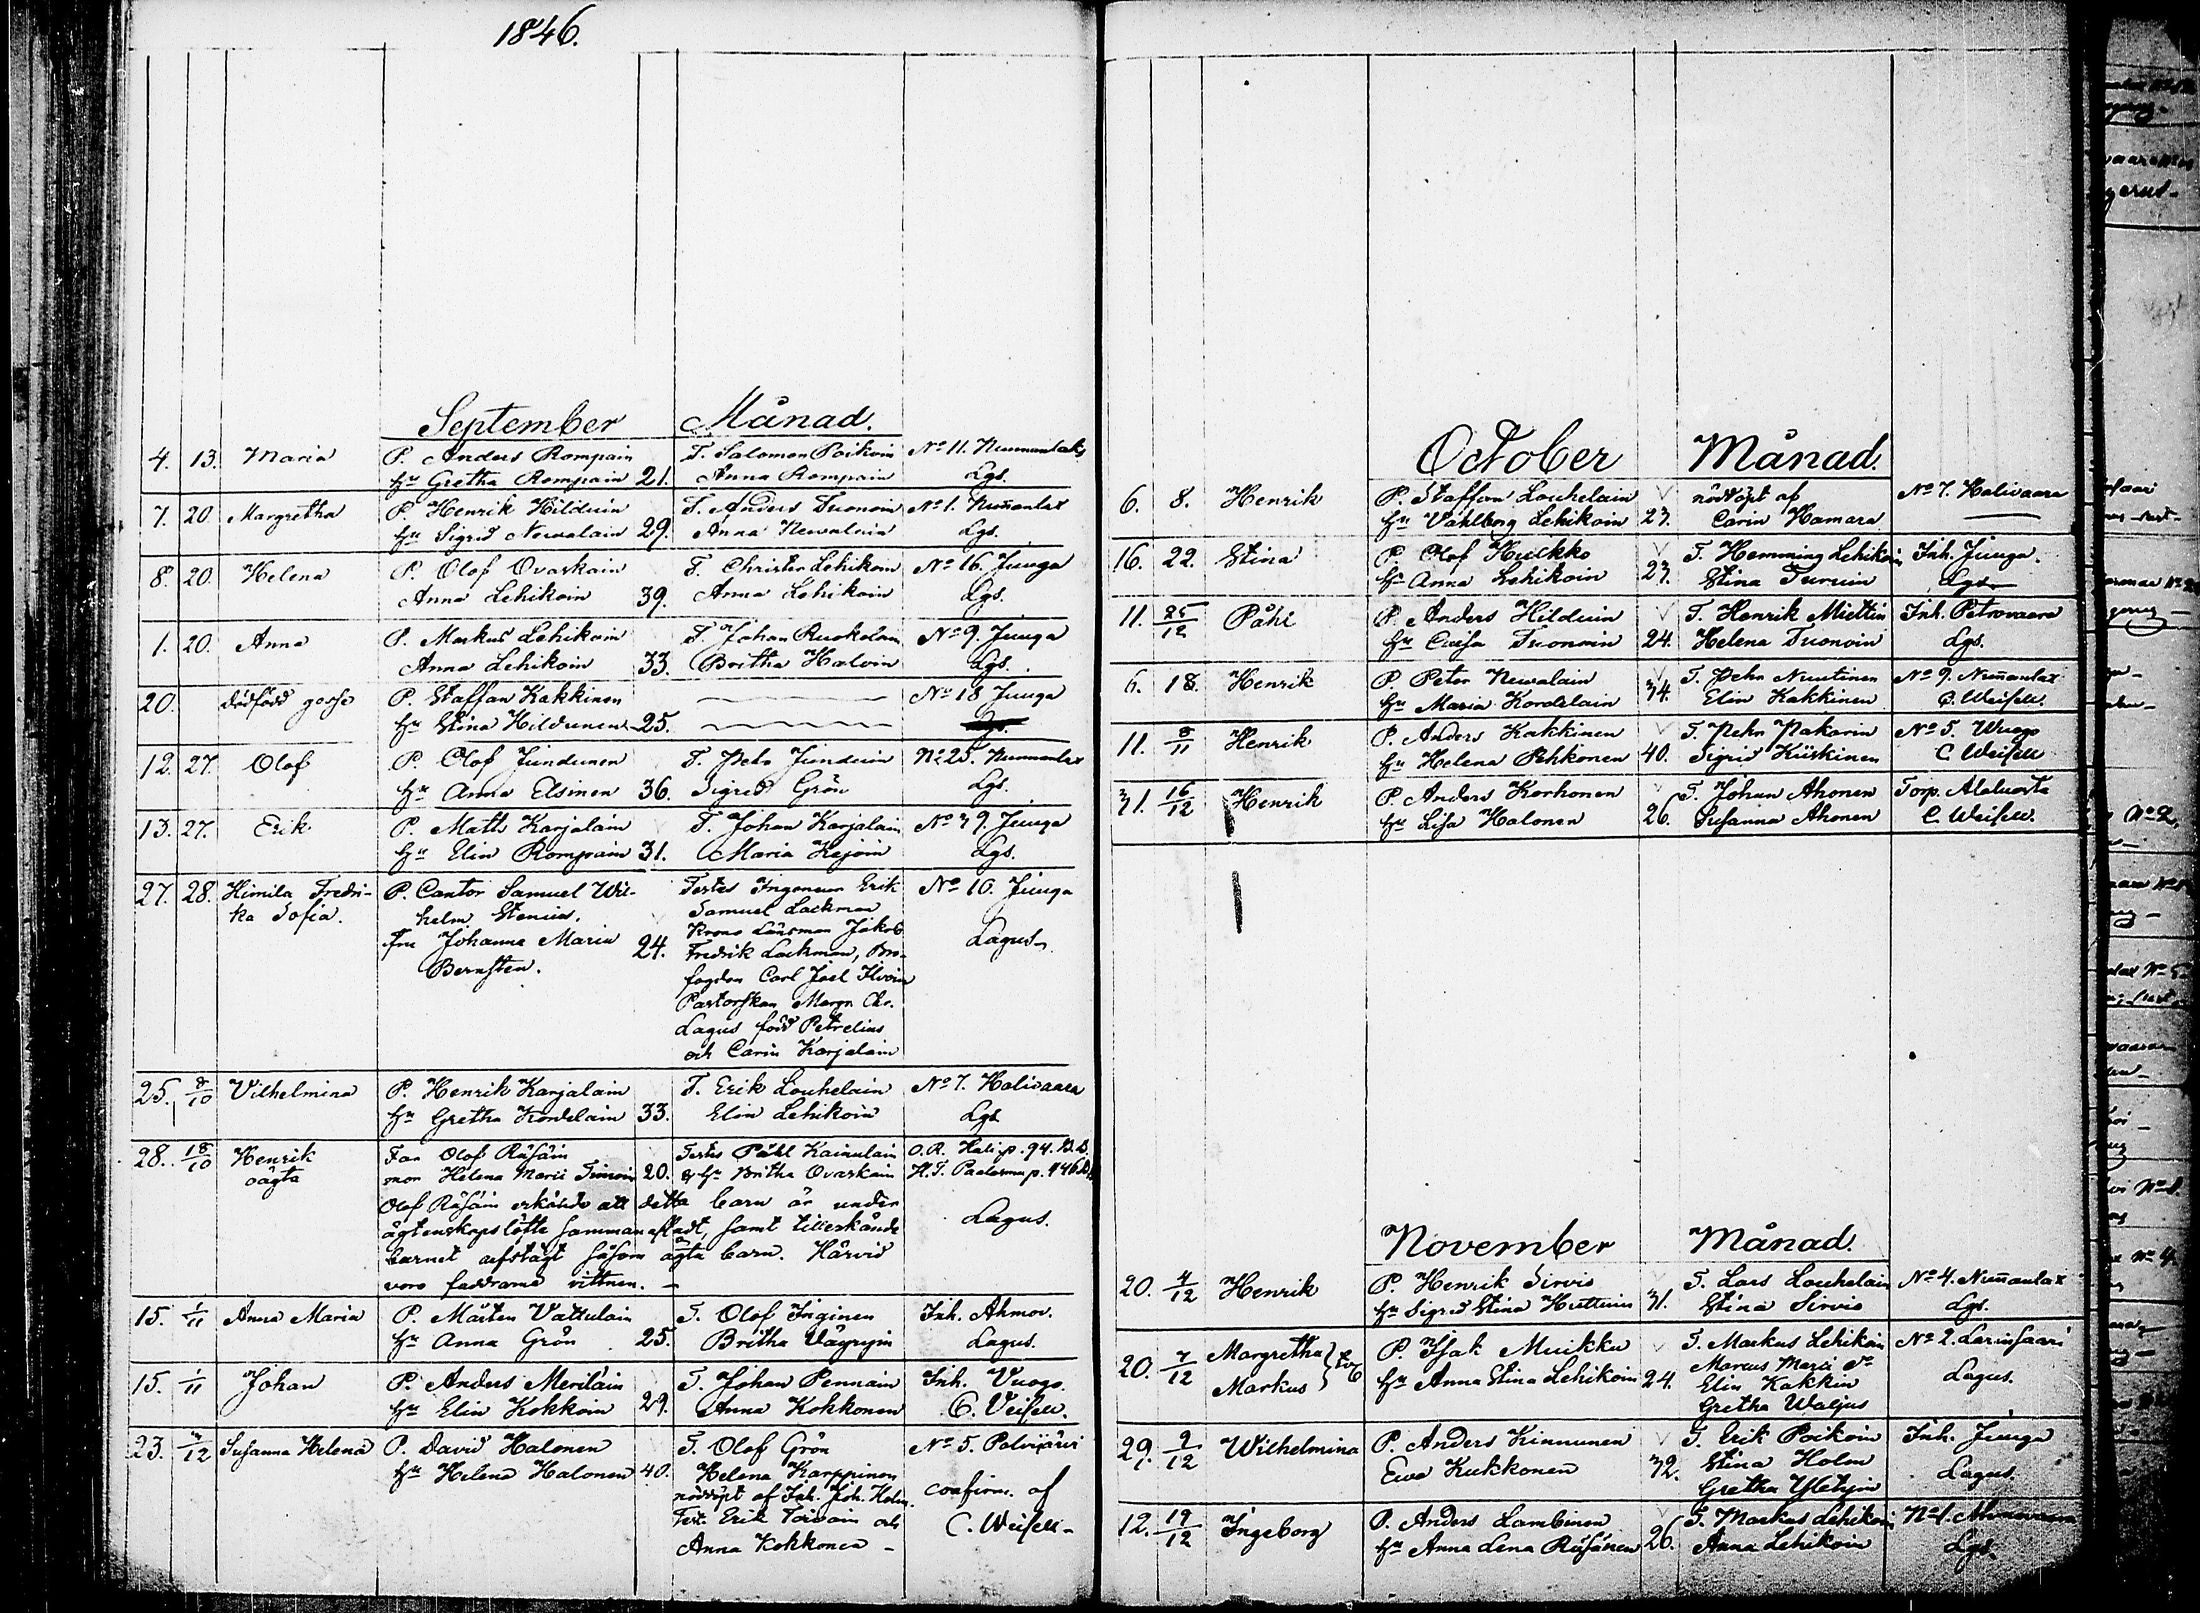 1846.
September Månad.
4. 13. Maria P. Anders Rompain T. Salomon Poikoin No 11. Nunnanlaks
hu Gretha Rompain 21. Anna Rompain Lgs.
7. 20. Margretha P. Henrik Hilduin T. Anders Tuonoin No 1. Nunanlax
hu Sigrid Newalain 29. Anna Newalain Lgs.
8. 20. Helena P. Olof Ovaskain T. Christer Lehikoin No 16. Juuga
Anna Lehikoin 39. Anna Lehikoin Lgs.
1. 20. Anna P. Markus Lehikoin T. Johan Ruokolain No 9. Juuga
Anna Lehikoin 33. Britha Halvin Lgs.
20. dödfödd gosse P. Staffan Kakkinen No 18 Juuga
hu Stina Hildunen 25.
12. 27. Olof P. Olof Jundunen T. Pehr Junduin No 25. Nunnanlax
hu Anna Elsinen 36. Sigred Grön Lgs.
13. 27. Erik P. Math Karjalain T. Johan Karjalain No 39 Juuga
hu Elin Rompain 31. Maria Kejoin Lgs.
27. 28. Himila Fredri- P. Cantor Samuel Wil- Testes Ingeneur Erik No 10. Juuga
ka Sofia. helm Stenius. Samuel Lackman
fru Johanna Maria 24. Krono Länsman Jakob Lagus
Bernsten. Fredrik Lackman, Bro-
fogden Carl Joel Ilvoin
Pastorskan Margr Chr.
Lagus född Petrelius
och Carin Karjalain
25. 8/10 Vilhelmina P. Henrik Karjalain T. Erik Louhelain No 7. Halivaara
hu Gretha Kordelain 33. Elin Lehikoin Lgs
28. 18/10 Henrik Far Olof Räsäin Testes Påhl Kainulain O.R. Hali p. 94.
oägta mor Helena Maria Timoin 20. & hu Britha Ovaskain H.T. p. 446
Olof Räsäin erkände att detta barn är under
ägtenskaps löfte sammanafladt, samt tillerkände Lagus.
barnet arfsrätt såsom ägta barn. Härvid
voro faddrarne vittnen.
15. 1/11 Anna Maria P. Mårten Vattulain T. Olof Inginen Inh. Ahmov.
hu Anna Grön 25. Britha Väyryin Lagus.
15. 1/11 Johan P. Anders Meriläin T. Johan Pennain Inh. Vuogo
hu Elin Kokkoin 29. Anna Kokkonen C. Veisell.
23. /12 Susanna Helena P. David Halonen T. Olof Grön No 5. Polvijärvi
hu Helena Halonen 40. Helena Karppinen
nöddöpt af Inh. Joh. Holm. confirm. af
Test. Erik Toivain och C. Weisell
Anna Kokkonen
October Månad.
6. 8. Henrik P. Staffan Louhelain nöddöpt af No 7. Halivaara
hu Vahlborg Lehikoin 23. Carin Hamara
16. 22. Stina P. Olof Huikko T. Hemming Lehikoin Inh. Juuga.
hu Anna Lehikoin 23. Stina Turuin Lgs
11. 25/12 Påhl P. Anders Hilduin T. Henrik Miettin Inh. Petrovaara
hu Caisa Tuonoin 24. Helena Tuonoin Lgs.
6. 18. Henrik P Peter Newalain T. Pehr Nuutinen No 9. Nunanlax
hu Maria Kordelain 34. Elin Kakkinen C. Weisell.
11. 8/11 Henrik P. Anders Kakkinen T. Pehr Pakarin No 5. Wuogo
hu Helena Pehkonen 40. Sigrid Kiiskinen C Weisell
31. 16/12 Henrik P. Anders Korhonen T. Johan Ahonen Torp. Alaluosta
hu Lisa Halonen 26. Susanna Ahonen C Weisell.
November Månad.
20. 4/12 Henrik P. Henrik Sirvio T. Lars Louhelain No 4. Nunanlax
hu Sigrid Stina Huttuin 31. Stina Sirvio Lgs.
20. 7/12 Margretha P. Isak Muikku T. Markus Lehikoin No 2. Larinsaari
Markus hu Anna Stina Lehikoin 24. Marcus Maria Elin Kakkin Lagus.
Gretha Waljus
29. 9/12 Wilhelmina P. Anders Kinnunen T. Erik Poikoin Inh. Juuga
Ewa Kukkonen 32. Stina Holm Lagus.
Gretha
12. 19/12 Ingeborg P. Anders Lambinen T. Markus Lehikoin No 1.
hu Anna Lena Räsänen 26. Anna Lehikoin Lgs.